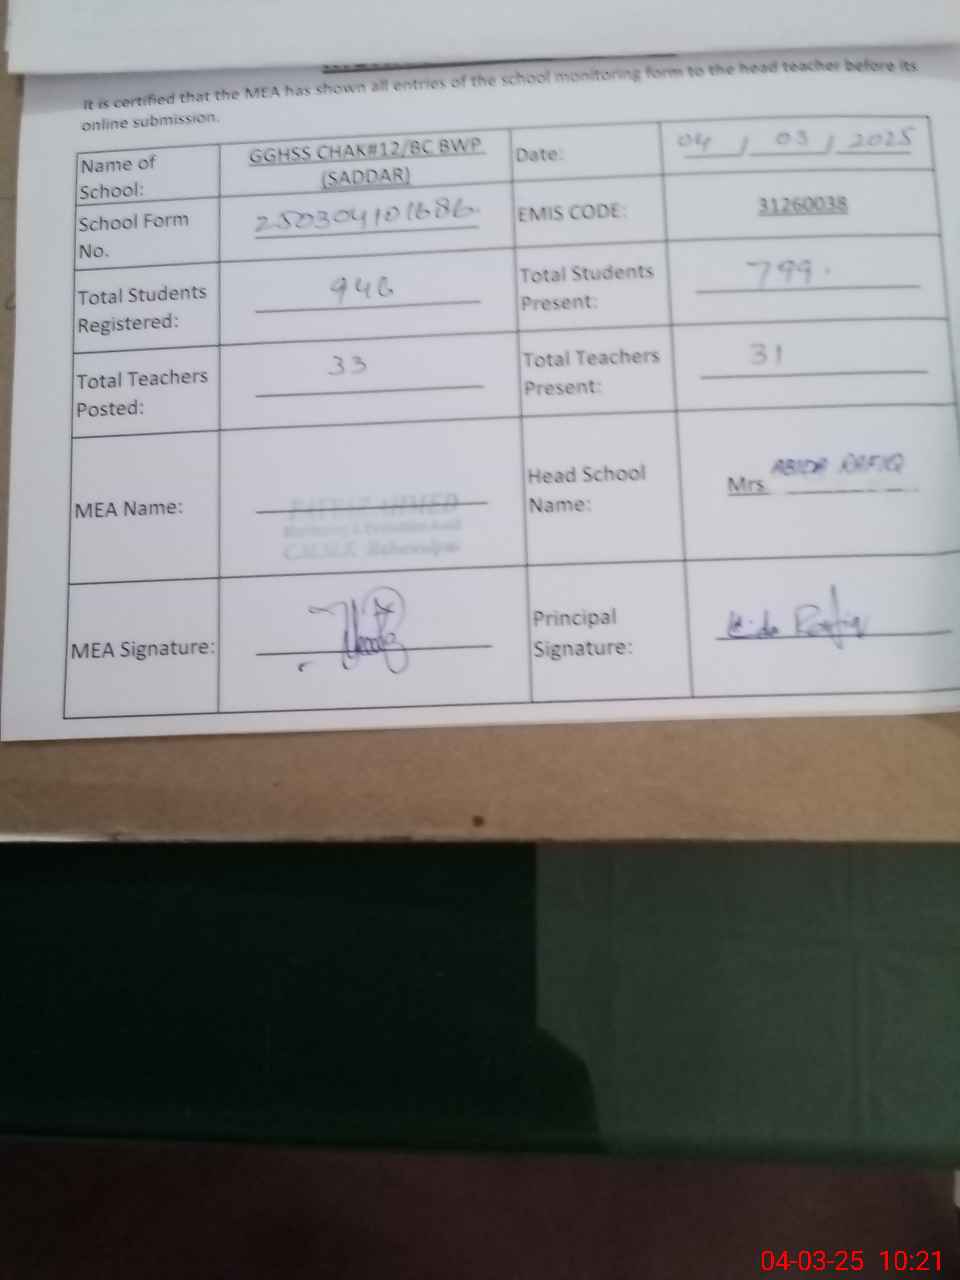 It is certified that the MEA has shown all entries of the school monitoring form to the head teacher before its
online submission.
Name of School: GGHSS CHAK#12/BC BWP (SADDAR) Date: 04 / 03 / 2025
School Form No. 250304101686 EMIS CODE: 31260038
Total Students Registered: 946 Total Students Present: 799
Total Teachers Posted: 33 Total Teachers Present: 31
MEA Name: AHMED Head School Name: Mrs. ABIDA RAFIQ
MEA Signature: Principal Signature: Abida Rafiq
04-03-25 10:21